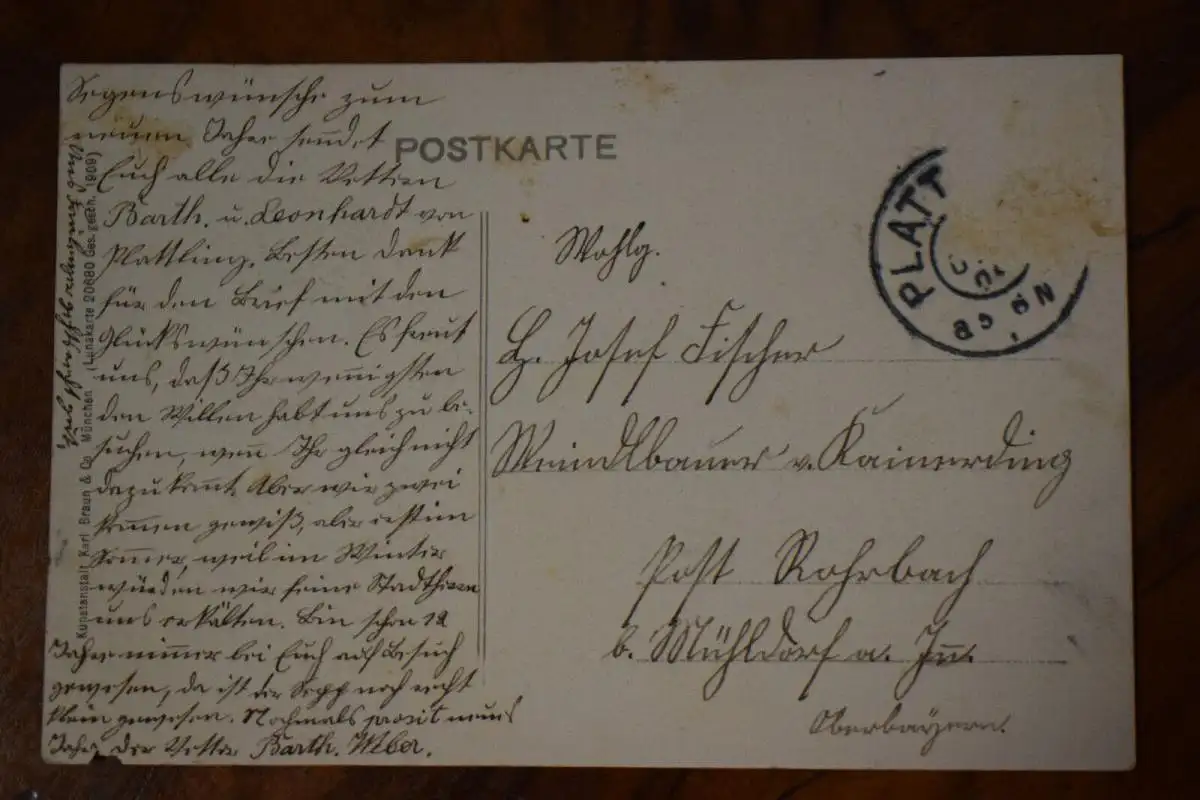 Segenswünsche zum
neuen Jahre sendet
Euch alle die Vettern
Barth. u. Leonhardt von
Plattling. Besten Dank
für den Brief mit den
Glückswünschen. Es freut
uns, daß Ihr wenigsten
den Willen habt uns zu be-
suchen, wenn Ihr gleich nicht
dazu kommt. Aber wir zwei
kommen gewiß, aber erst im
Sommer, weil im Winter
würden wir feine Stadtherrn
uns erkälten. Bin schon 12
Jahre nimmer bei Euch auf Besuch
gewesen, da ist der Sepp noch recht
klein gewesen. Nochmals prosit neues
Jahr, der Vetter Barth. Weber.
Kunstanstalt Karl Braun & Co. München (Lunakarte 20680 Ges. gesch. 1909)
POSTKARTE
PLATT
Wohlg.
H. Josef Fischer
Weindlbauer v. Kainerding
Post Rohrbach
b. Mühldorf a. Inn.
Oberbayern.